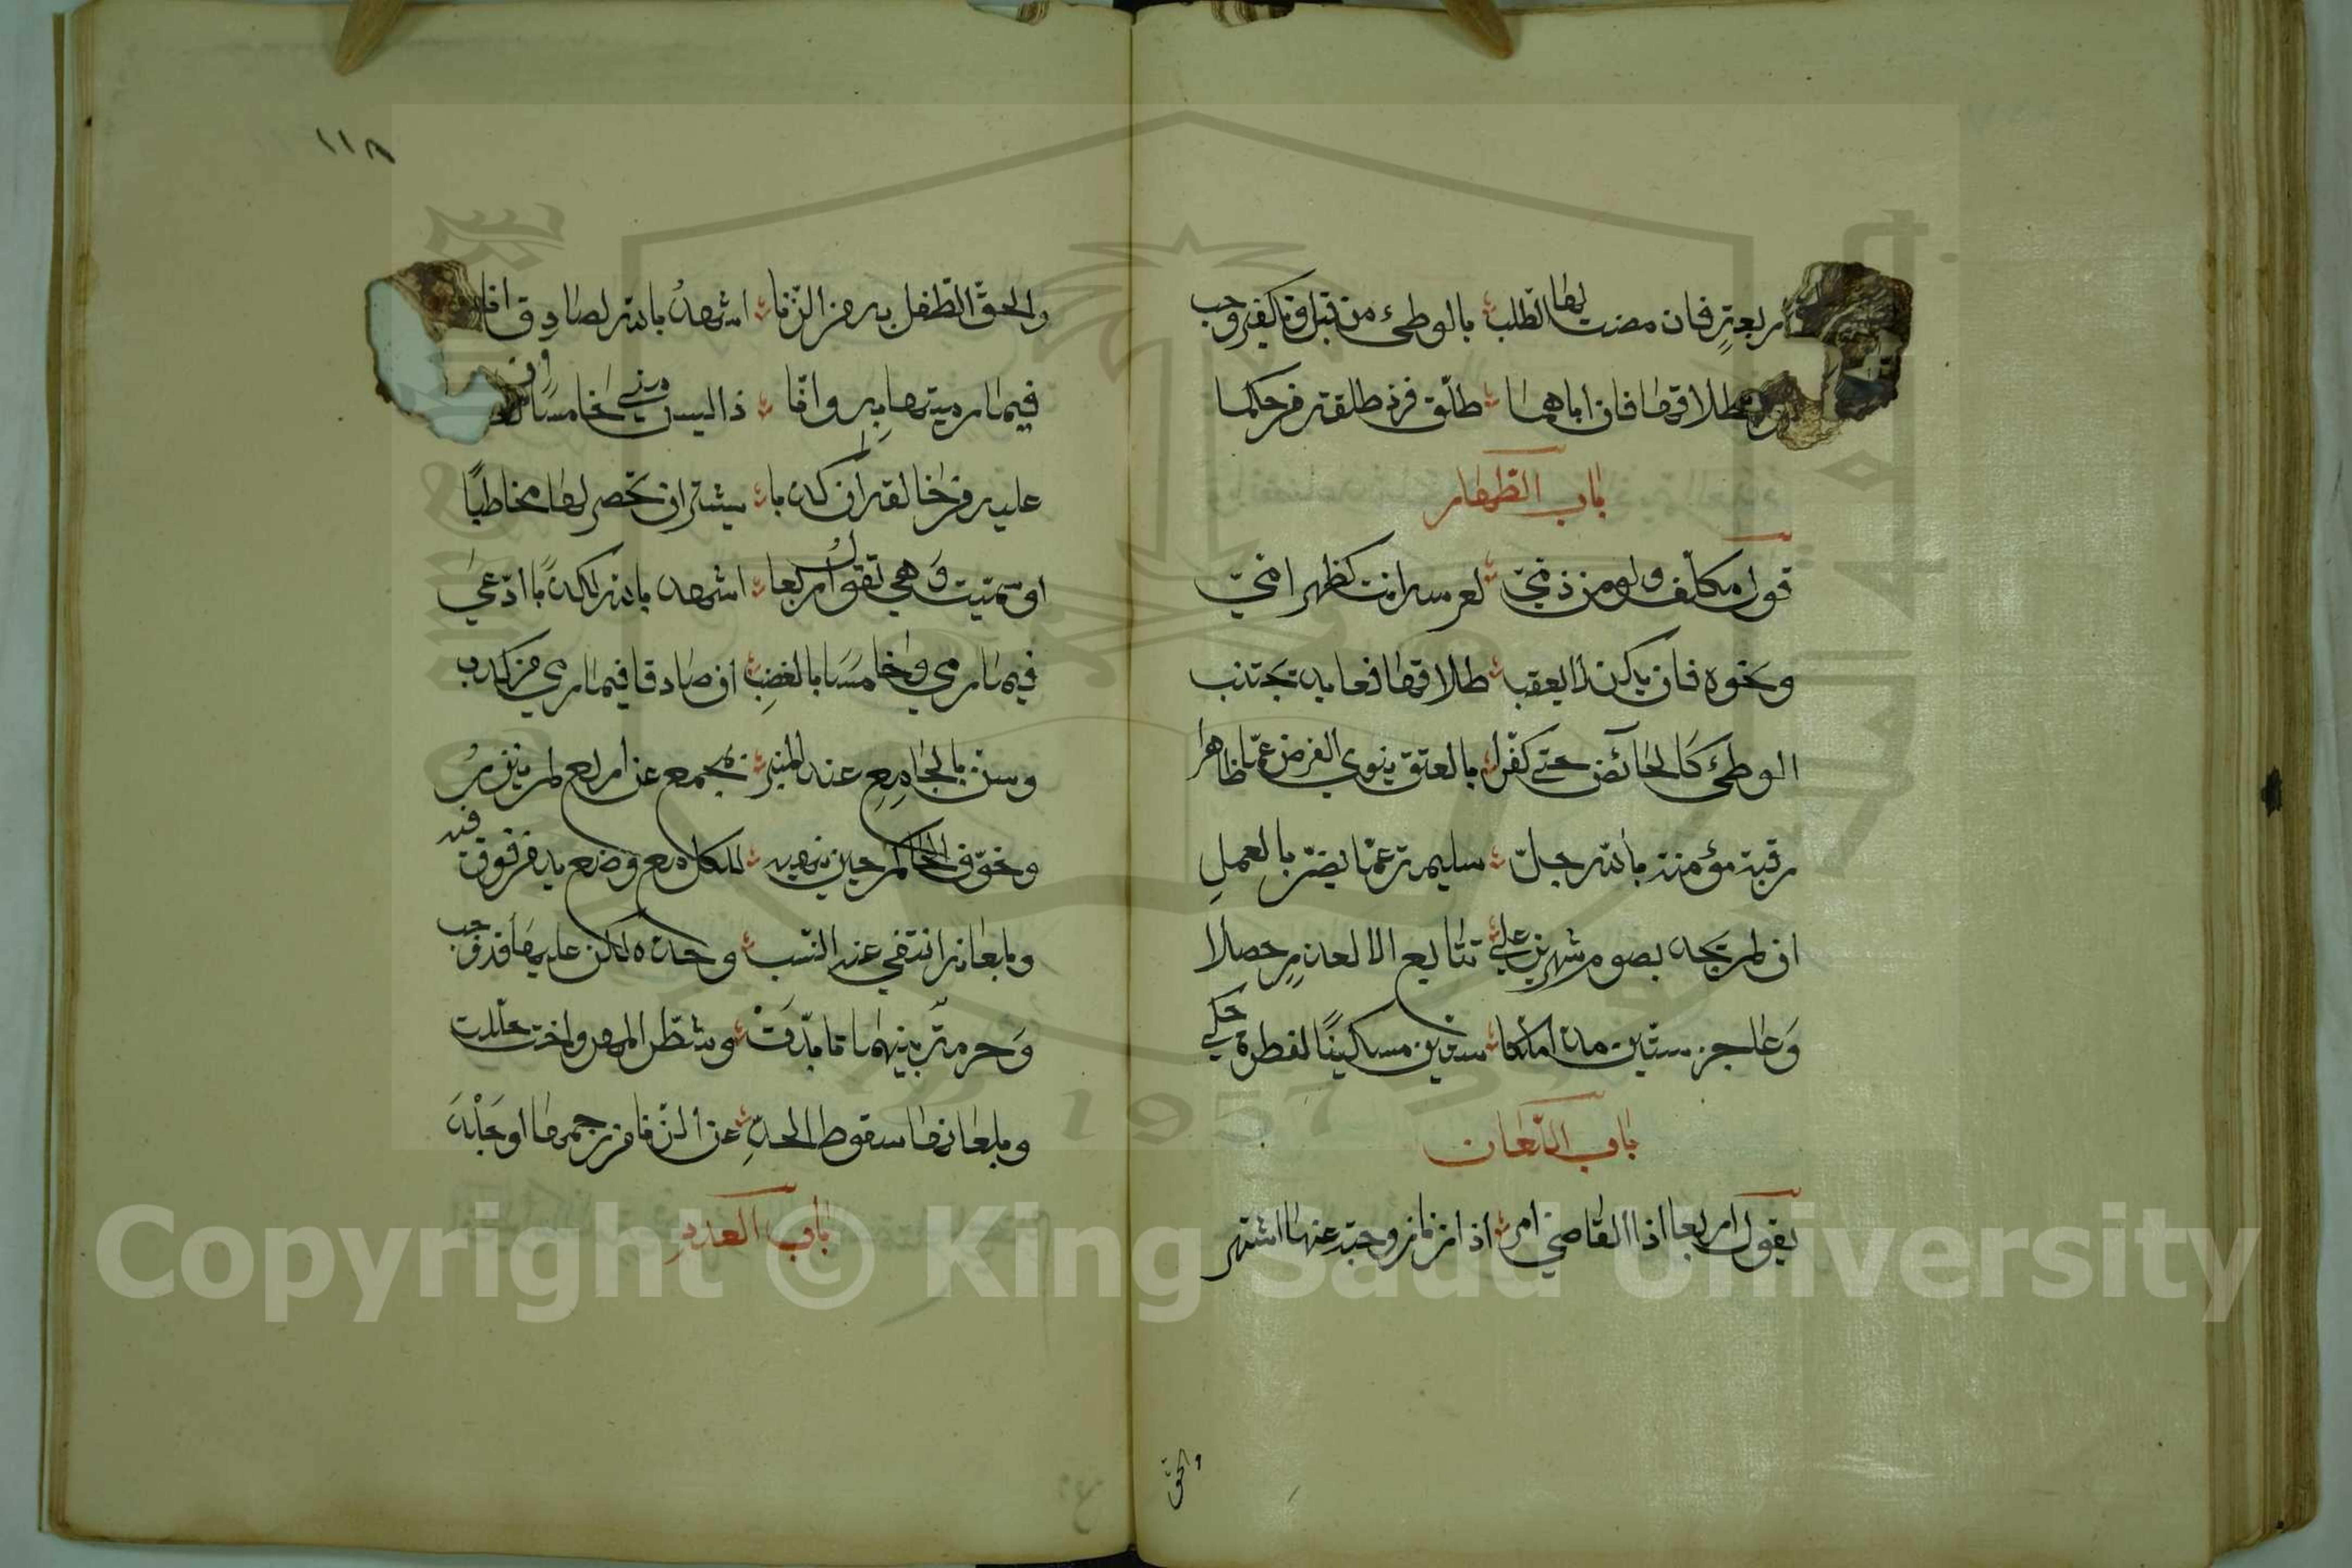 اربعة فان مضت لها الطلب بالوطئ من قبل وتكفير وجب
طلاقها فان اباهما طلق فرد طلقة من حكما
باب الظهار
قول مكلف ولو من ذمي لعرسه انت كظهر امي
ونحوه فان يكن لا يعقب طلاقها فعايد تجتنب
الوطئ كالحائض حتى كفرا بالعتق ينوي الفرض عما ظاهرا
رقبة مؤمنة بالله جل سليمة عما يضر بالعمل
ان لم تجد بصوم شهرين على تتابع الا لعذر حصلا
وعاجز ستين مدا ملكا ستين مسكينا كفطرة حكي
باب اللعان
يقول اربعا اذا القاضي امر اذا زنا زوجته عنها اشتهر
والحق
١١٨
والحق الطفل به من الزنا اشهد بالله لصادق انا
فيما رميتها به وانا ذا ليس مني خامسا
عليه من خالقه ان كذبا يشير ان تحضر لها مخاطبا
او سميت وهي تقول اربعا اشهد بالله لكذبا ادعى
فيما رمى وخامسا بالغضب ان صادقا فيما رمى من كذب
وسن بالجامع عند المنبر بمجمع عن اربع لم ينزر
وخوف الحاكم حين ينهيه الكل مع وضع يد من فوق فيه
وبلعانه انتفى عنه النسب وحده لكن عليها قد وجب
وحرمة بينهما تأبدت وشطر المهر واخت حللت
وبلعانها سقوط الحد عن الزنا من رجمها او جلد
باب العدد
Copyright © King Saud University
1957